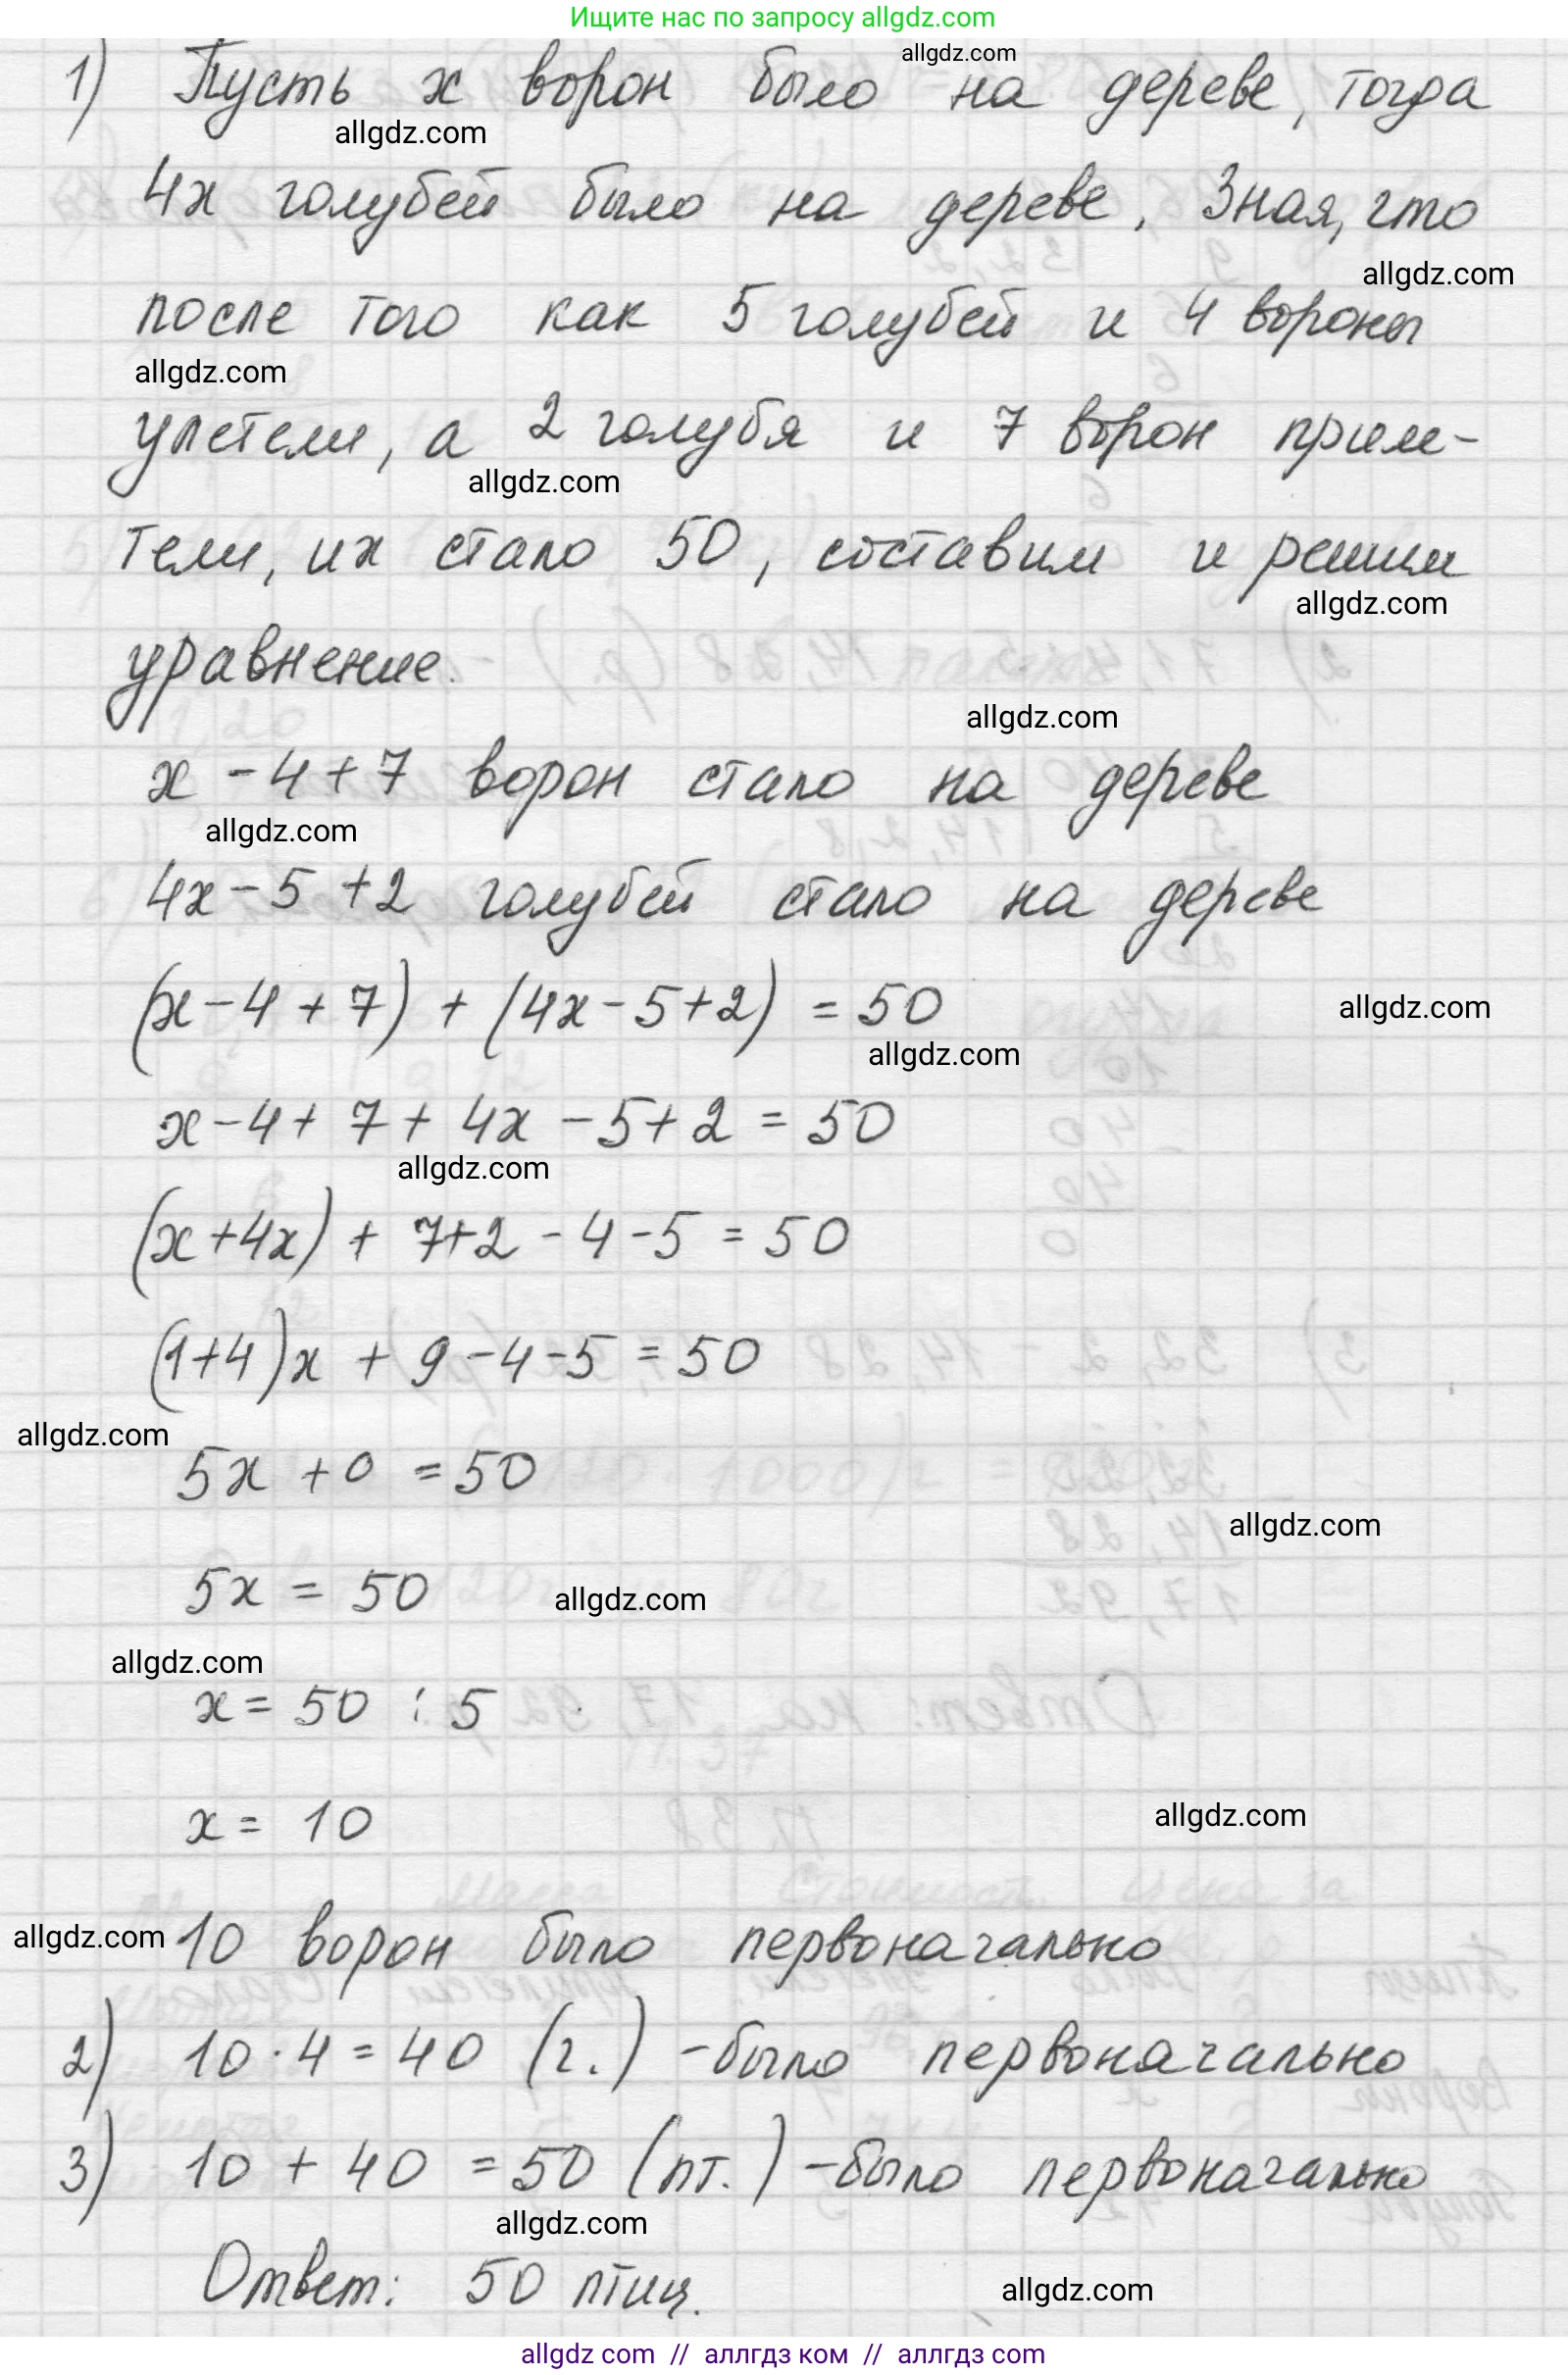 Ищите нас по запросу allgdz.com
allgdz.com
1) Пусть x ворон было на дереве, тогда
allgdz.com
4x голубей было на дереве. Зная, что
allgdz.com
после того как 5 голубей и 4 вороны
allgdz.com
улетели, а 2 голубя и 7 ворон приле-
allgdz.com
тели, их стало 50, составим и решим
allgdz.com
уравнение.
allgdz.com
x - 4 + 7 ворон стало на дереве
allgdz.com
4x - 5 + 2 голубей стало на дереве
(x - 4 + 7) + (4x - 5 + 2) = 50
allgdz.com
allgdz.com
x - 4 + 7 + 4x - 5 + 2 = 50
allgdz.com
(x + 4x) + 7 + 2 - 4 - 5 = 50
(1 + 4)x + 9 - 4 - 5 = 50
allgdz.com
5x + 0 = 50
allgdz.com
5x = 50
allgdz.com
allgdz.com
x = 50 : 5
x = 10
allgdz.com
allgdz.com
10 ворон было первоначально
2) 10 · 4 = 40 (г.) - было первоначально
3) 10 + 40 = 50 (пт.) - было первоначально
allgdz.com
Ответ: 50 птиц.
allgdz.com
allgdz.com // аллгдз ком // аллгдз.com